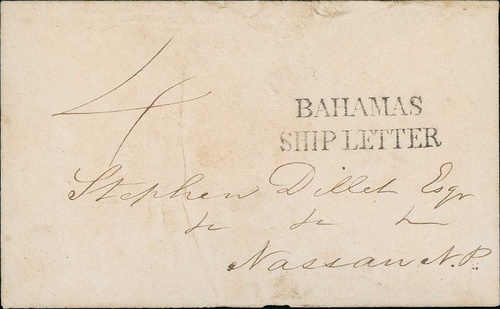 4
BAHAMAS
SHIP LETTER
Stephen Dillet Esqr
&c &c &c
Nassau N.P.